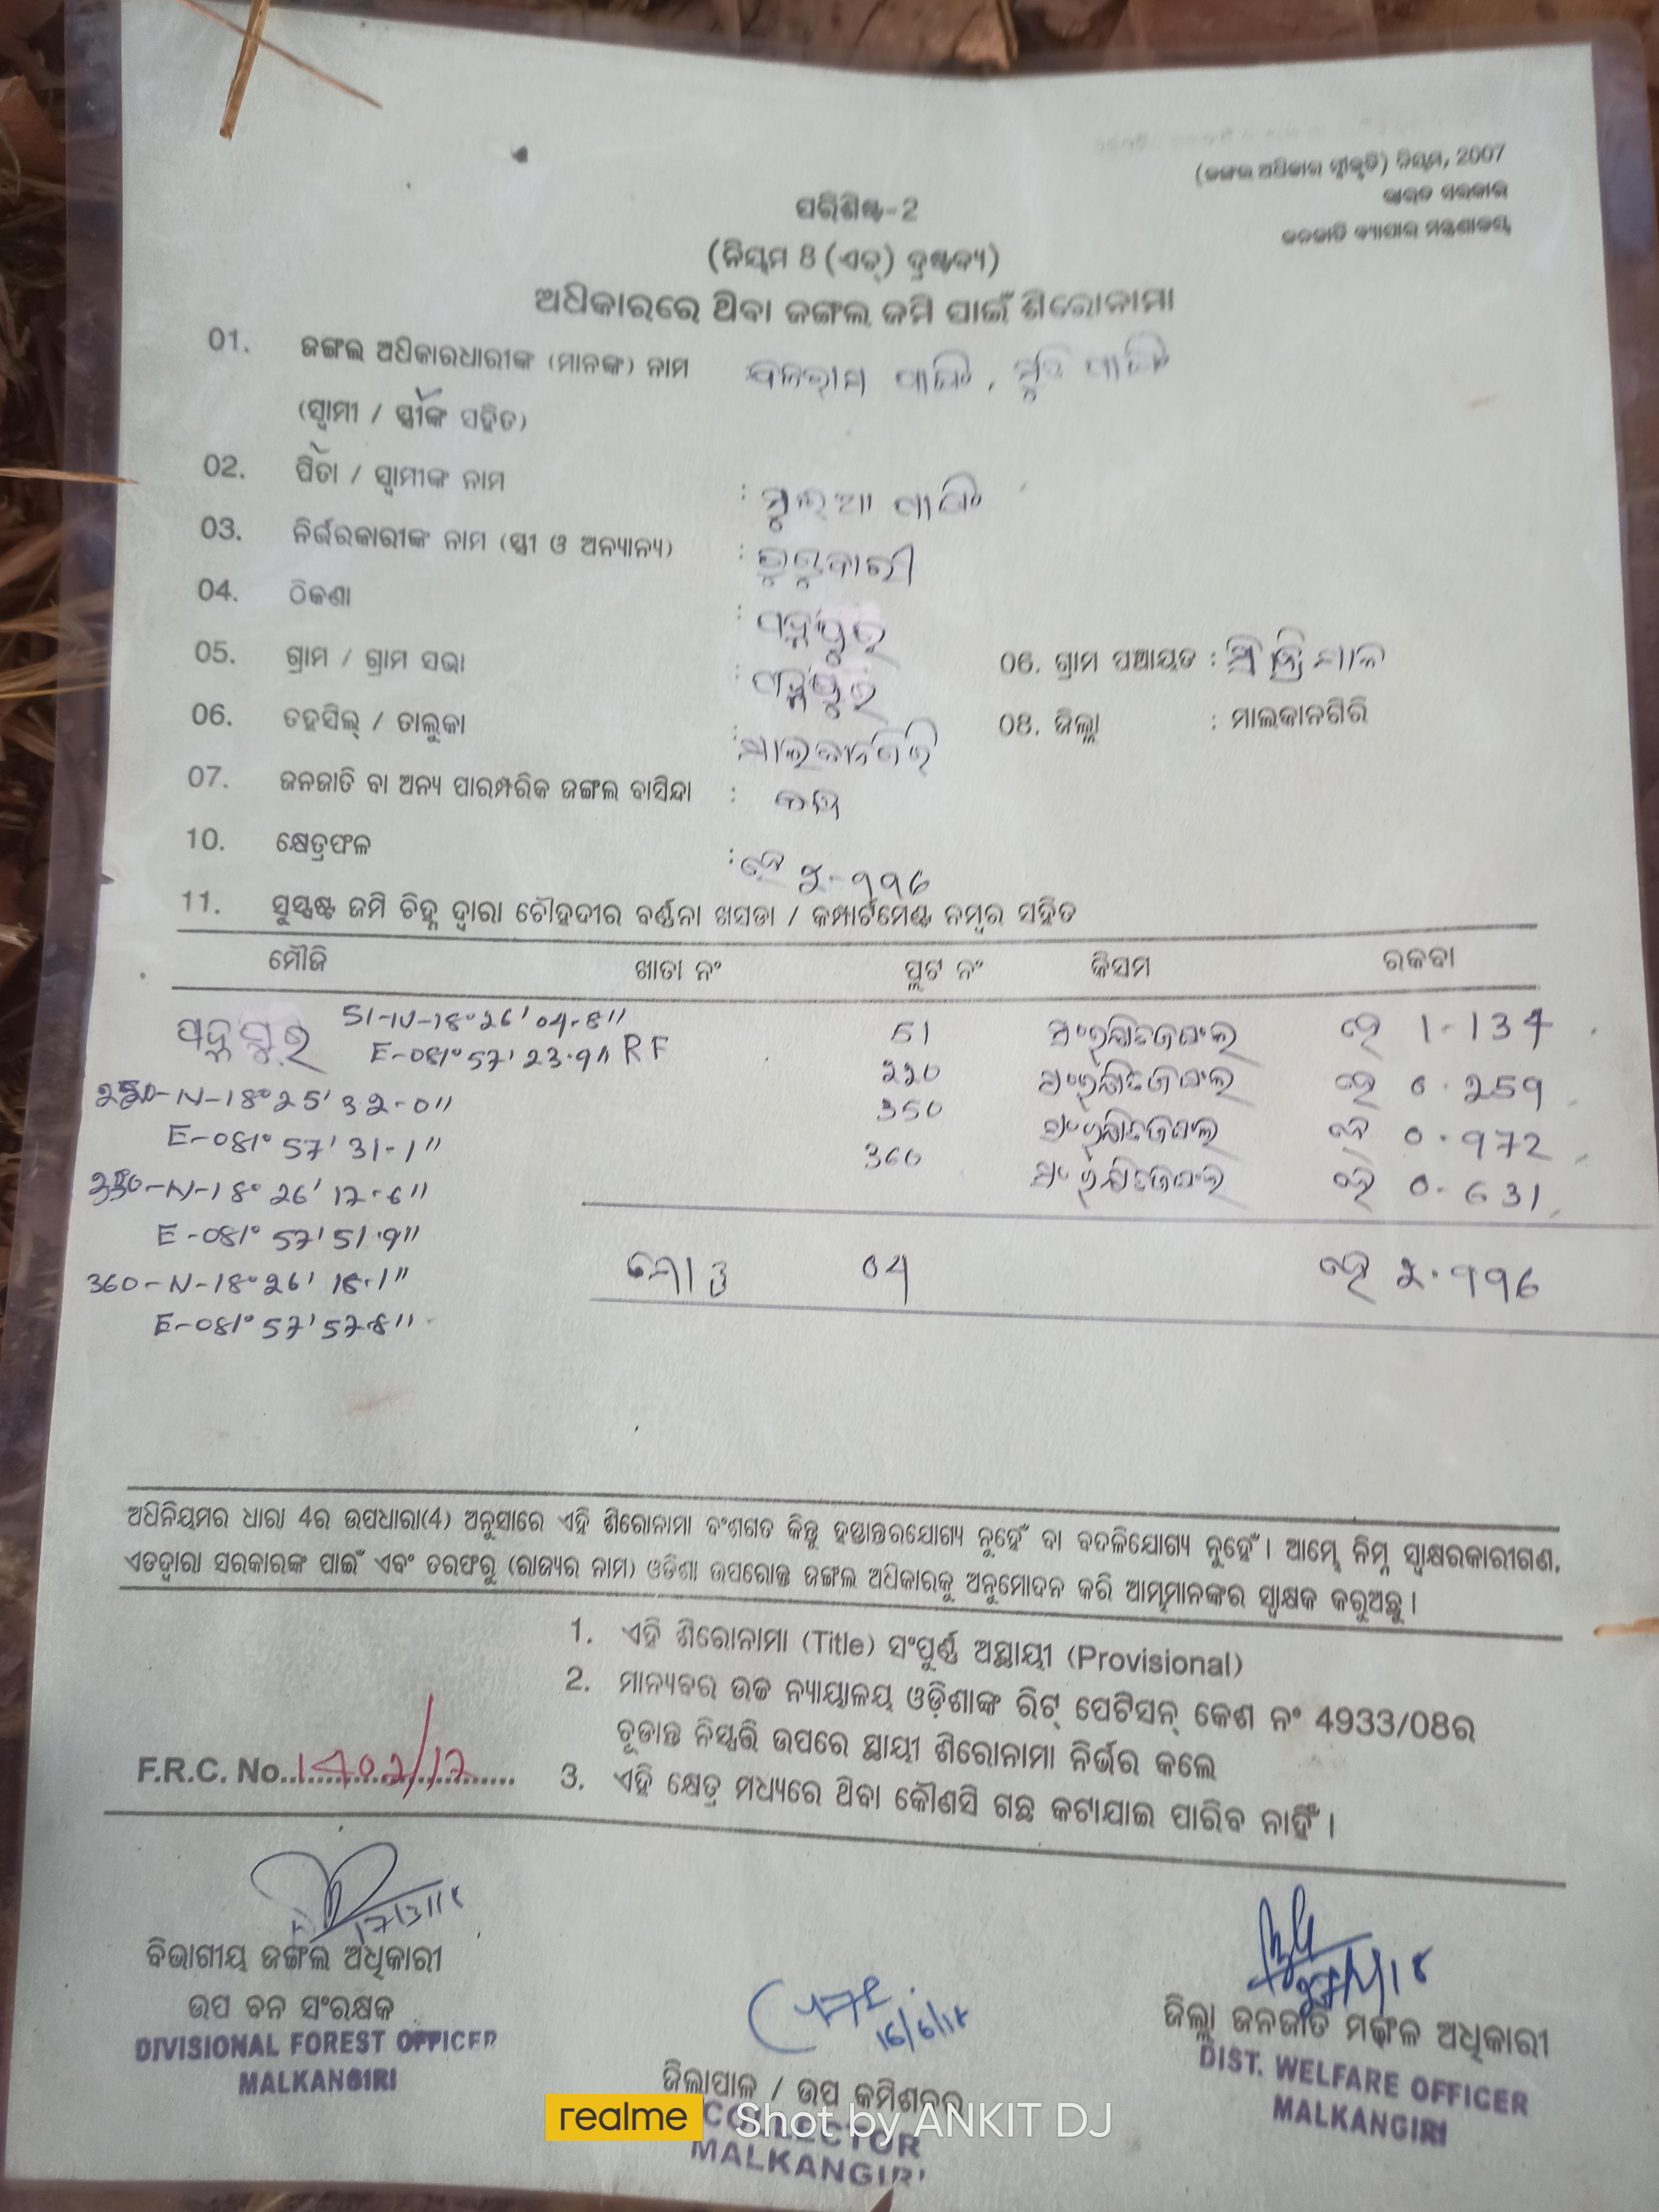 (ଜଙ୍ଗଲ ଅଧିକାର ସ୍ୱୀକୃତି) ନିୟମ, 2007
ଭାରତ ସରକାର
ଜନଜାତି ବ୍ୟାପାର ମନ୍ତ୍ରଣାଳୟ
ପରିଶିଷ୍ଟ-2
(ନିୟମ 8 (ଏଚ୍) ଦ୍ରଷ୍ଟବ୍ୟ)
ଅଧିକାରରେ ଥିବା ଜଙ୍ଗଲ ଜମି ପାଇଁ ଶିରୋନାମା
01. ଜଙ୍ଗଲ ଅଧିକାରଧାରୀଙ୍କ (ମାନଙ୍କ) ନାମ
(ସ୍ୱାମୀ / ସ୍ତ୍ରୀଙ୍କ ସହିତ)
02. ପିତା / ସ୍ୱାମୀଙ୍କ ନାମ :
03. ନିର୍ଭରକାରୀଙ୍କ ନାମ (ସ୍ତ୍ରୀ ଓ ଅନ୍ୟାନ୍ୟ) :
04. ଠିକଣା :
05. ଗ୍ରାମ / ଗ୍ରାମ ସଭା : 06. ଗ୍ରାମ ପଞ୍ଚାୟତ :
06. ତହସିଲ୍ / ତାଲୁକା : ମାଲକାନଗିରି 08. ଜିଲ୍ଲା : ମାଲକାନଗିରି
07. ଜନଜାତି ବା ଅନ୍ୟ ପାରମ୍ପରିକ ଜଙ୍ଗଲ ବାସିନ୍ଦା :
10. କ୍ଷେତ୍ରଫଳ : ହେ ୨.୯୯୬
11. ସୁସ୍ପଷ୍ଟ ଜମି ଚିହ୍ନ ଦ୍ୱାରା ଚୌହଦୀର ବର୍ଣ୍ଣନା ଖସଡା / କମ୍ପାର୍ଟମେଣ୍ଟ ନମ୍ବର ସହିତ
ମୌଜି ଖାତା ନଂ ପ୍ଲଟ ନଂ କିସମ ରକବା
51-N-18°26'04.8" 51 ସଂରକ୍ଷିତ ଜଙ୍ଗଲ ହେ 1.134
E-081°57'23.9" RF
220-N-18°25'32.0" 220 ସଂରକ୍ଷିତ ଜଙ୍ଗଲ ହେ 0.259
E-081°57'31.1" 350 ସଂରକ୍ଷିତ ଜଙ୍ଗଲ ହେ 0.972
350-N-18°26'17.6" 360 ସଂରକ୍ଷିତ ଜଙ୍ଗଲ ହେ 0.631
E-081°57'51.9"
360-N-18°26'18.1" ମୋଟ 04 ହେ ୨.୯୯୬
E-081°57'57.8"
ଅଧିନିୟମର ଧାରା 4ର ଉପଧାରା(4) ଅନୁସାରେ ଏହି ଶିରୋନାମା ବଂଶଗତ କିନ୍ତୁ ହସ୍ତାନ୍ତରଯୋଗ୍ୟ ନୁହେଁ ବା ବଦଳିଯୋଗ୍ୟ ନୁହେଁ । ଆମ୍ଭେ ନିମ୍ନ ସ୍ୱାକ୍ଷରକାରୀଗଣ,
ଏତଦ୍ୱାରା ସରକାରଙ୍କ ପାଇଁ ଏବଂ ତରଫରୁ (ରାଜ୍ୟର ନାମ) ଓଡିଶା ଉପରୋକ୍ତ ଜଙ୍ଗଲ ଅଧିକାରକୁ ଅନୁମୋଦନ କରି ଆମ୍ଭମାନଙ୍କର ସ୍ୱାକ୍ଷକ କରୁଅଛୁ ।
1. ଏହି ଶିରୋନାମା (Title) ସଂପୂର୍ଣ୍ଣ ଅସ୍ଥାୟୀ (Provisional)
2. ମାନ୍ୟବର ଉଚ୍ଚ ନ୍ୟାୟାଳୟ ଓଡ଼ିଶାଙ୍କ ରିଟ୍ ପେଟିସନ୍ କେଶ ନଂ 4933/08ର
ଚୂଡାନ୍ତ ନିସ୍ପତ୍ତି ଉପରେ ସ୍ଥାୟୀ ଶିରୋନାମା ନିର୍ଭର କଲେ
F.R.C. No. 1402/17
3. ଏହି କ୍ଷେତ୍ର ମଧ୍ୟରେ ଥିବା କୌଣସି ଗଛ କଟାଯାଇ ପାରିବ ନାହିଁ ।
ବିଭାଗୀୟ ଜଙ୍ଗଲ ଅଧିକାରୀ
ଉପ ବନ ସଂରକ୍ଷକ
DIVISIONAL FOREST OFFICER
MALKANGIRI
16/6/18
ଜିଲାପାଳ / ଉପ କମିଶନର
COLLECTOR
MALKANGIRI
ଜିଲ୍ଲା ଜନଜାତି ମଙ୍ଗଳ ଅଧିକାରୀ
DIST. WELFARE OFFICER
MALKANGIRI
realme Shot by ANKIT DJ